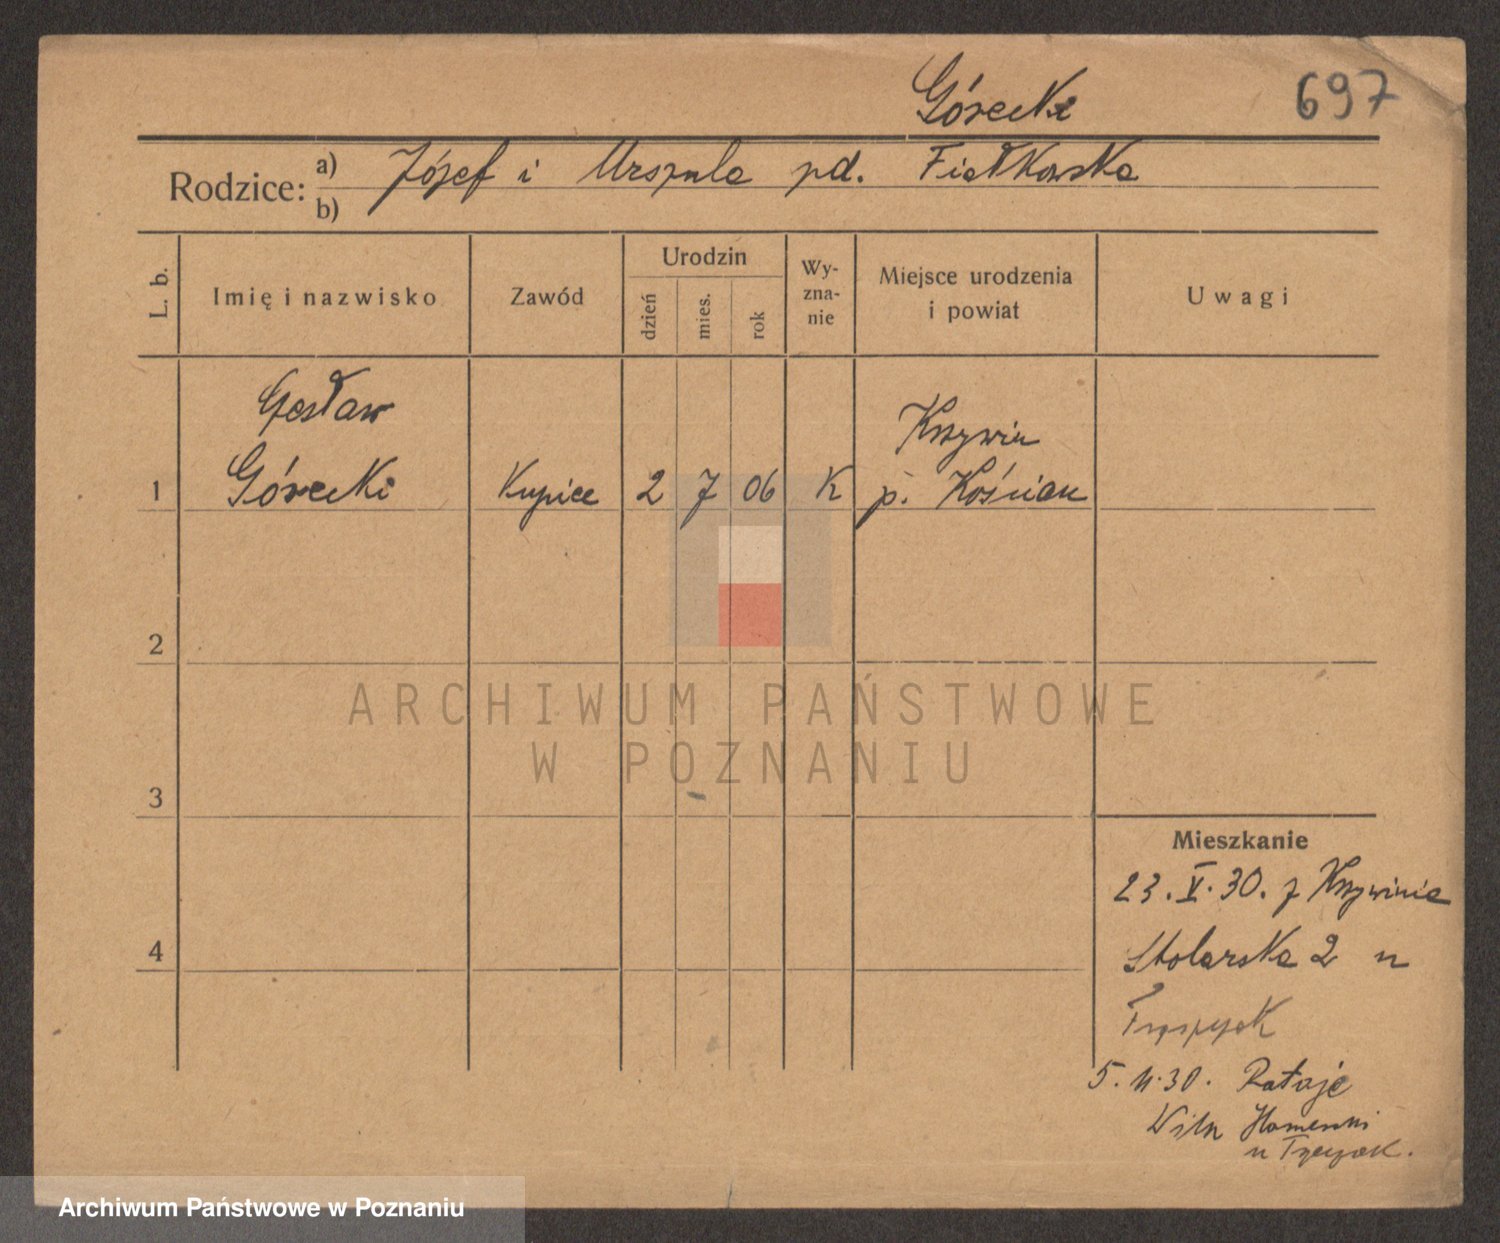 Górecki
697
Rodzice: a) Józef i Urszula pd. Fiałkowska
b)
L. b.
Imię i nazwisko
Zawód
Urodzin
dzień
mies.
rok
Wy-
zna-
nie
Miejsce urodzenia
i powiat
Uwagi
Czesław
Krzywiń
1 Górecki Kupiec 2 7 06 K p. Kościan
2
ARCHIWUM PAŃSTWOWE
W POZNANIU
3
Mieszkanie
23. V. 30. z Krzywinia
4
Stolarska 2 u
5. 11. 30. Rataje
u
Archiwum Państwowe w Poznaniu